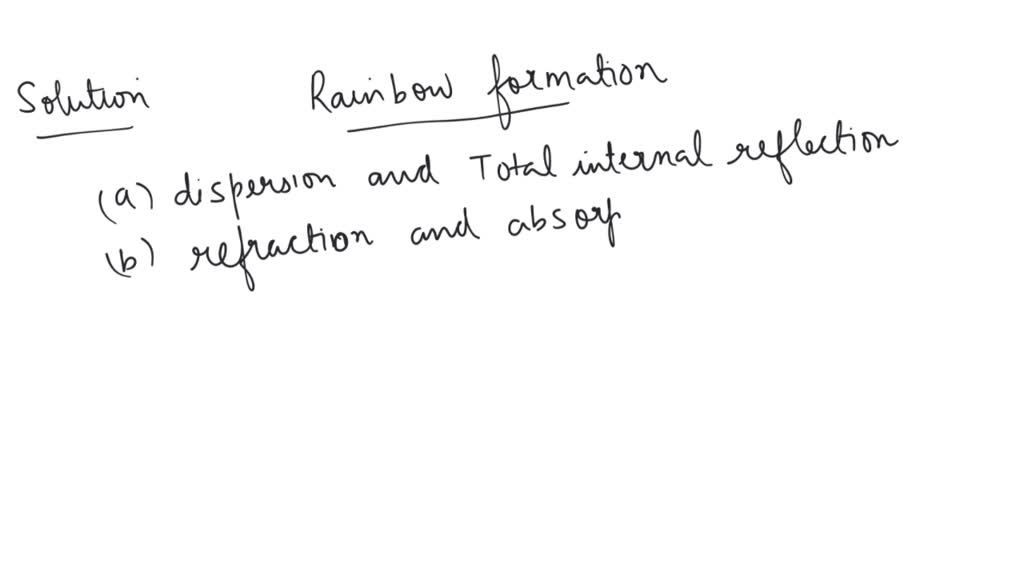 Solution Rainbow formation
(a) dispersion and Total internal reflection
(b) refraction and absorp